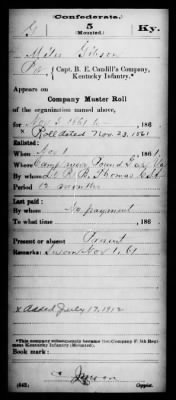 (Confederate.)
G 5 Ky.
(Mounted.)
Miles Gibson
Pvt, Capt. B. E. Caudill's Company,
Kentucky Infantry.*
Appears on
Company Muster Roll
of the organization named above,
for Nov 3 1861, 186 .
x Roll dated Nov. 23, 1861
Enlisted:
When Nov 1, 1861.
Where Camp near Pound Gap Va
By whom Lt. B. Thomas C.S.A.
Period 12 months
Last paid:
By whom No payment
To what time , 186 .
Present or absent Present
Remarks: Sworn Nov 1, 61
x Added July 17, 1912
*This company subsequently became (2d) Company F, 5th Regiment Kentucky Infantry (Mounted).
Book mark:
(642) Copyist.